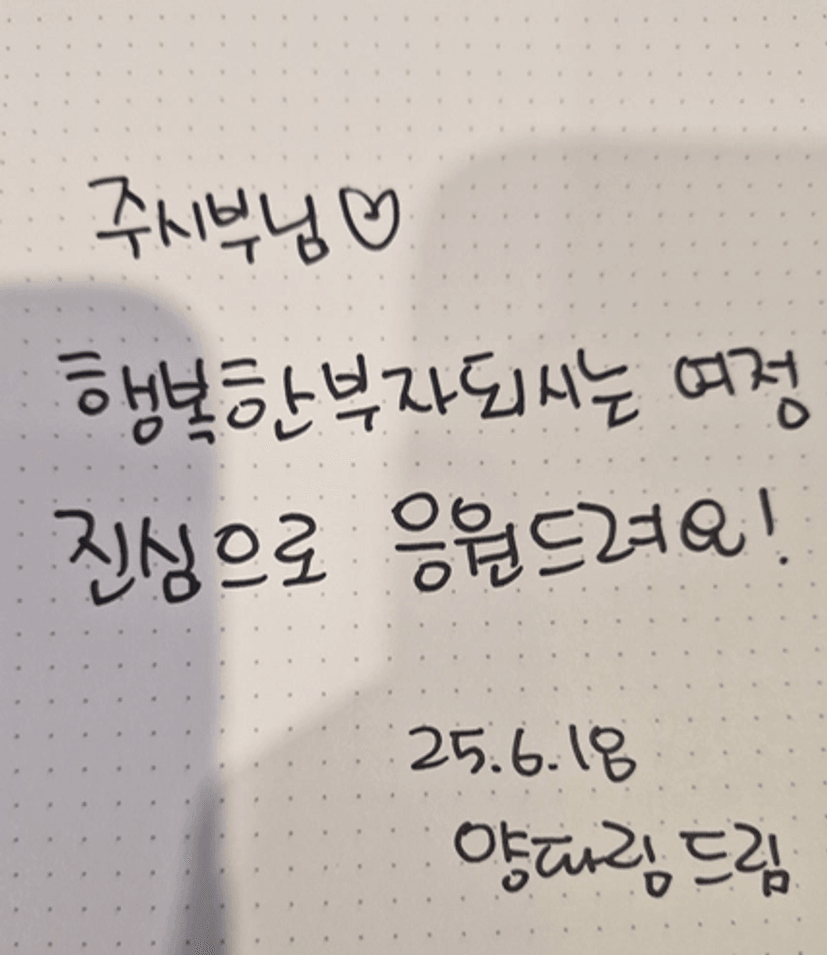 주시부님♡
행복한부자되시는 여정
진심으로 응원드려요!
25.6.18
양파링 드림